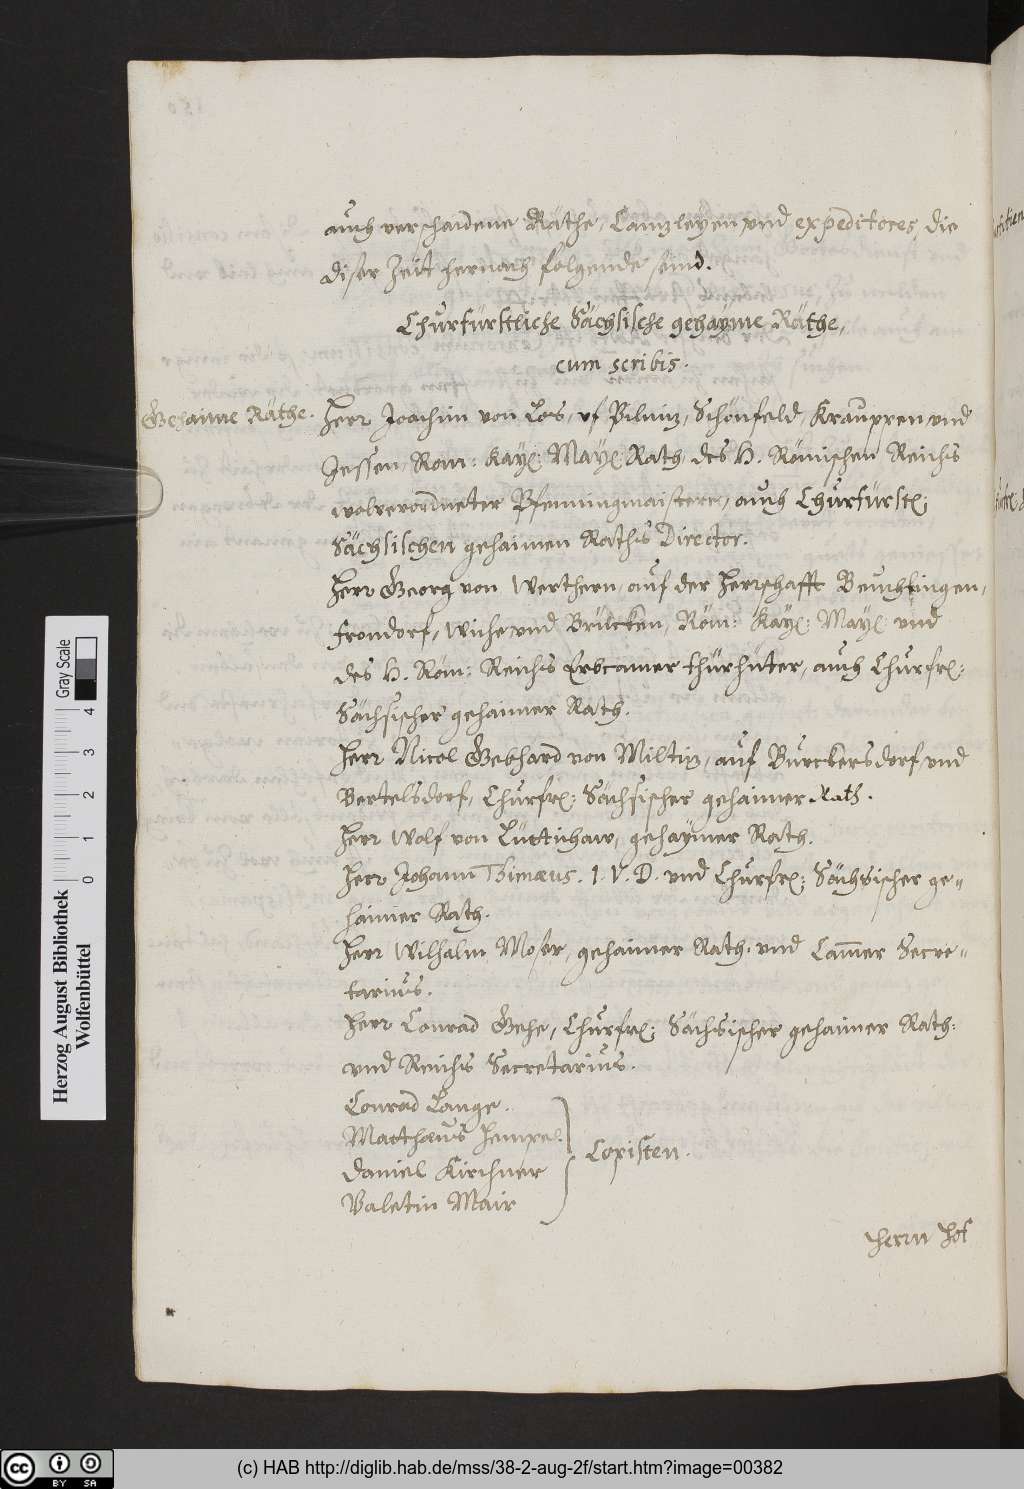 auch verschaidene Räthe, Canzleyen vnd expeditores, die
diser Zeit hernach folgende seind.
Churfürstliche Sächsische gehayme Räthe,
cum scribis.
Gehaime Räthe.
Herr Joachim von Los, vf Pilniz, Schönfeld, Kraupzen, vnd
Jessen, Röm: Kay: May: Rath, des H. Römischen Reichs
wolverordneter Pfenningmaister, auch Churfürstl:
Sächsischen gehaimen Raths Director.
Herr Georg von Werthern, auf der Herrschafft Beuchlingen,
Frondorf, Wiche vnd Brücken, Röm: Kay: May: vnd
des H. Röm: Reichs Erbcamer thürhüter, auch Churfrl:
Sächsischer gehaimer Rath.
Herr Nicol Gebhard von Miltiz, auf Burckersdorf, vnd
Bertelsdorf, Churfrl: Sächsischer gehaimer Rath.
Herr Wolf von Lüttichaw, gehaymer Rath.
Herr Johann Thimæus. I. V. D. vnd Churfrl: Sächsischer ge-
haimer Rath.
Herr Wilhalm Moser, gehaimer Rath, vnd Camer Secre-
tarius.
Herr Conrad Gehe, Churfrl: Sächsischer gehaimer Rath,
vnd Reichs Secretarius.
Conrad Lange.
Matthæus Hempel
Daniel Kirchner
Valetin Mair
Copisten.
Herrn Hof
Herzog August Bibliothek
Wolfenbüttel
Gray Scale
0 1 2 3 4
(c) HAB http://diglib.hab.de/mss/38-2-aug-2f/start.htm?image=00382
cc BY SA